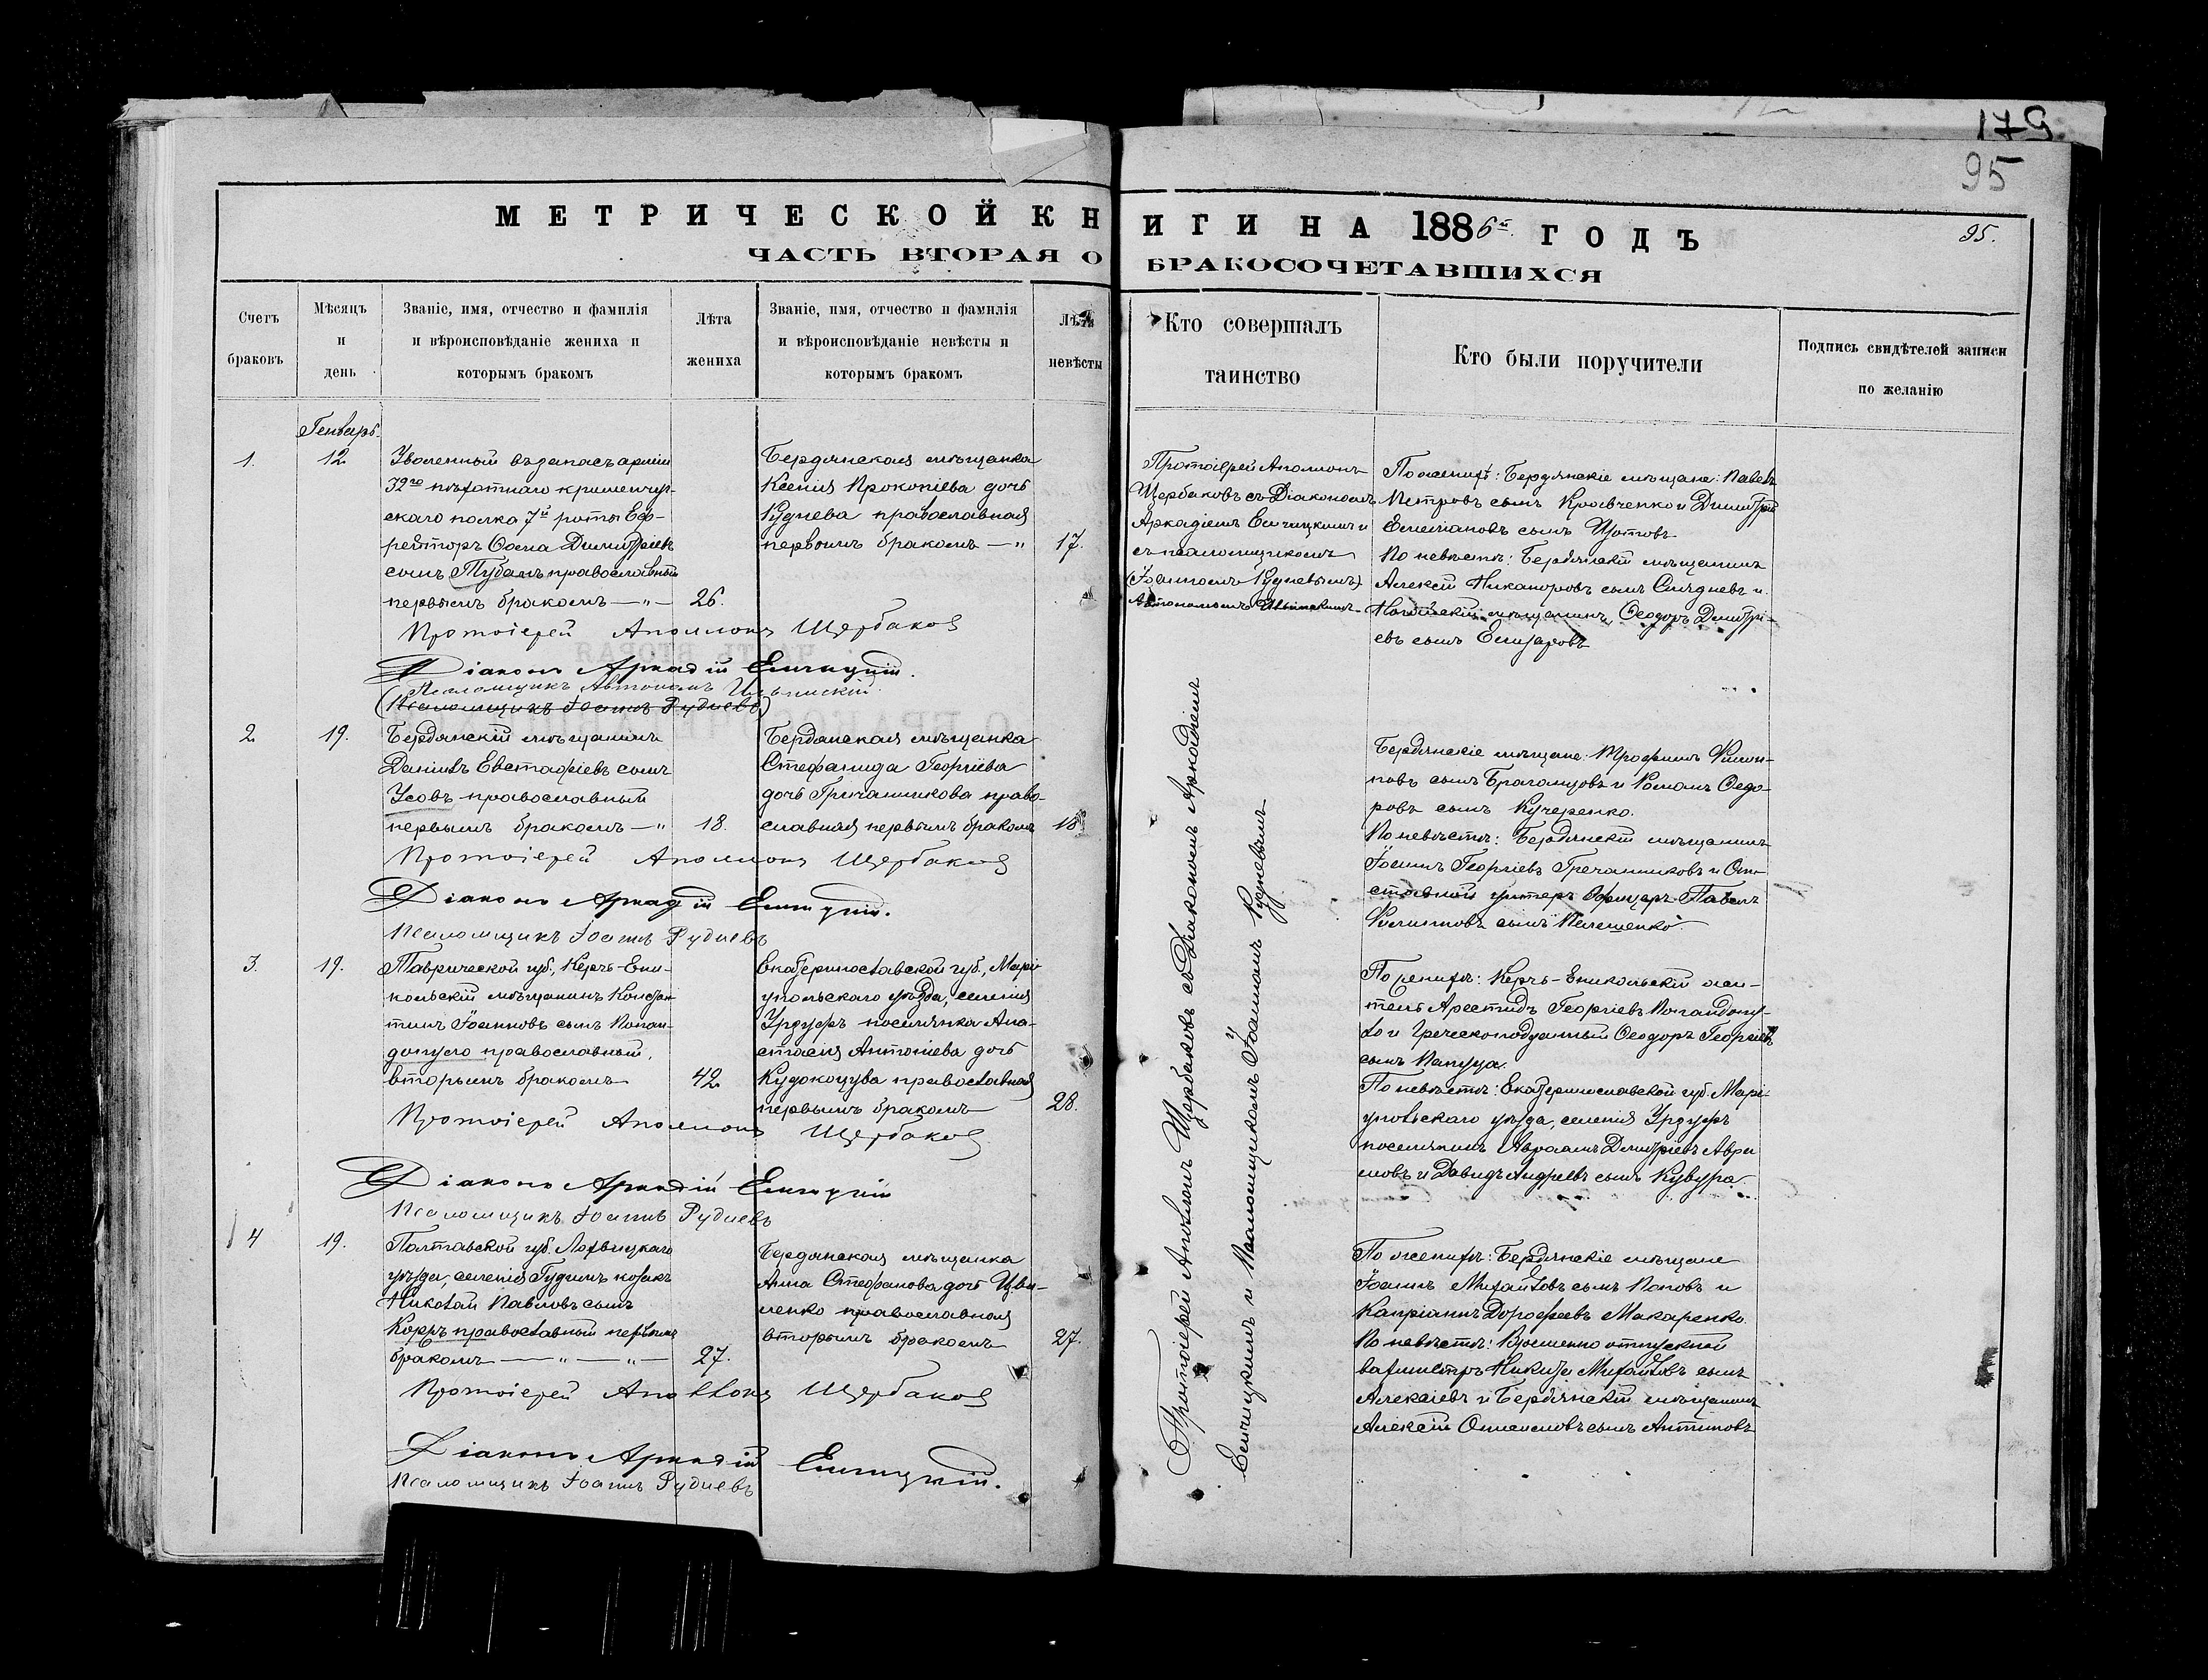 179
95
МЕТРИЧЕСКОЙ КНИГИ НА 1886й ГОДЪ
95.
ЧАСТЬ ВТОРАЯ О БРАКОСОЧЕТАВШИХСЯ
Счетъ браковъ
Мѣсяцъ и день
Званіе, имя, отчество и фамилія
и вѣроисповѣданіе жениха и
которымъ бракомъ
Лѣта жениха
Званіе, имя, отчество и фамилія
и вѣроисповѣданіе невѣсты и
которымъ бракомъ
Лѣта невѣсты
Кто совершалъ
таинство
Кто были поручители
Подпись свидѣтелей записи
по желанію
Генварь
1.
12
Уволенный въ запасъ арміи
32го пѣхотнаго кременчуг-
скаго полка 7й роты Еф-
рейторъ Ѳома Димитріевъ
сынъ Тубалъ православный
первымъ бракомъ — " —
26.
Бердянская мѣщанка
Ксенія Прокопіева дочь
Руднева православная
первымъ бракомъ — "
17.
Протоіерей Аполлонъ
Щербаковъ съ Діакономъ
Аркадіемъ Еличицкимъ и
съ псаломщикомъ
(Іоанномъ Рудневымъ)
Автономомъ Ильинскимъ
По женихѣ: Бердянскіе мѣщане: Павелъ
Петровъ сынъ Кравченко и Димитрій
Емеліановъ сынъ
По невѣстѣ: Бердянскій мѣщанинъ
Алексій Никаноровъ сынъ и
Ногайскій мѣщанинъ Ѳеодоръ Димитрі-
евъ сынъ Елизаровъ
Протоіерей Аполлонъ Щербаковъ
Діаконъ Аркадій
Псаломщикъ Автономъ Ильинскій
(Псаломщикъ Іоаннъ Рудневъ)
2.
19.
Бердянскій мѣщанинъ
Даніилъ Евстафіевъ сынъ
Усовъ православный
первымъ бракомъ — "
18.
Бердянская мѣщанка
Стефанида Георгіева
дочь Гречанникова право-
славная первымъ бракомъ
18
Бердянскіе мѣщане: Трофимъ Филип-
повъ сынъ и Романъ Ѳедо-
ровъ сынъ Кучеренко.
По невѣстѣ: Бердянскій мѣщанинъ
Іоаннъ Георгіевъ Гречанниковъ и От-
ставной унтеръ Офицеръ Павелъ
Филипповъ сынъ
Протоіерей Аполлонъ Щербаковъ
Діаконъ Аркадій
Псаломщикъ Іоаннъ Рудневъ
3.
19.
Таврической губ., Керчь-Ени-
кольскій мѣщанинъ Констан-
тинъ Іоанновъ сынъ Папан-
допуло православный,
вторымъ бракомъ
42
Екатеринославской губ., Марі-
упольскаго уѣзда, селенія
Урзуфъ поселянка Ана-
стасія Антоніева дочь
православная
первымъ бракомъ
28.
По женихѣ: Керчь-Еникольскій жи-
тель Арестидъ Георгіевъ Папандопу-
ло и Греческоподданный Ѳеодоръ Георгіевъ
сынъ
По невѣстѣ: Екатеринославской губ. Марі-
упольскаго уѣзда, селенія Урзуфъ
поселянинъ Авраамъ Димитріевъ Авра
мовъ и Давидъ Андреевъ сынъ
Протоіерей Аполлонъ Щербаковъ
Діаконъ Аркадій
Псаломщикъ Іоаннъ Рудневъ
4
19.
Полтавской губ. Лохвицкаго
уѣзда, селенія козакъ
Николай Павловъ сынъ
Коржъ православный первымъ
бракомъ — " — " —
27.
Бердянская мѣщанка
Анна Стефанова дочь Цви-
ленко православная
вторымъ бракомъ
27.
По женихѣ: Бердянскіе мѣщане
Іоаннъ Михайловъ сынъ Поповъ и
Капріанъ Дорофеевъ Макаренко.
По невѣстѣ: Временно отпускной
вахмистръ Никита Михайловъ сынъ
Алексіевъ и Бердянскій мѣщанинъ
Алексій сынъ Антиповъ
Протоіерей Аполлонъ Щербаковъ
Діаконъ Аркадій
Псаломщикъ Іоаннъ Рудневъ
Протоіерей Аполлонъ Щербаковъ съ Діакономъ Аркадіемъ
Еличицкимъ и Псаломщикомъ Іоанномъ Рудневымъ